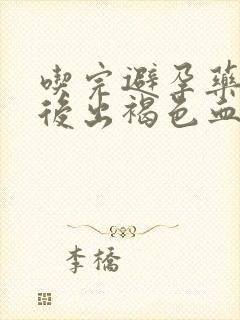 喫完避孕藥
後出褐色血
李橋